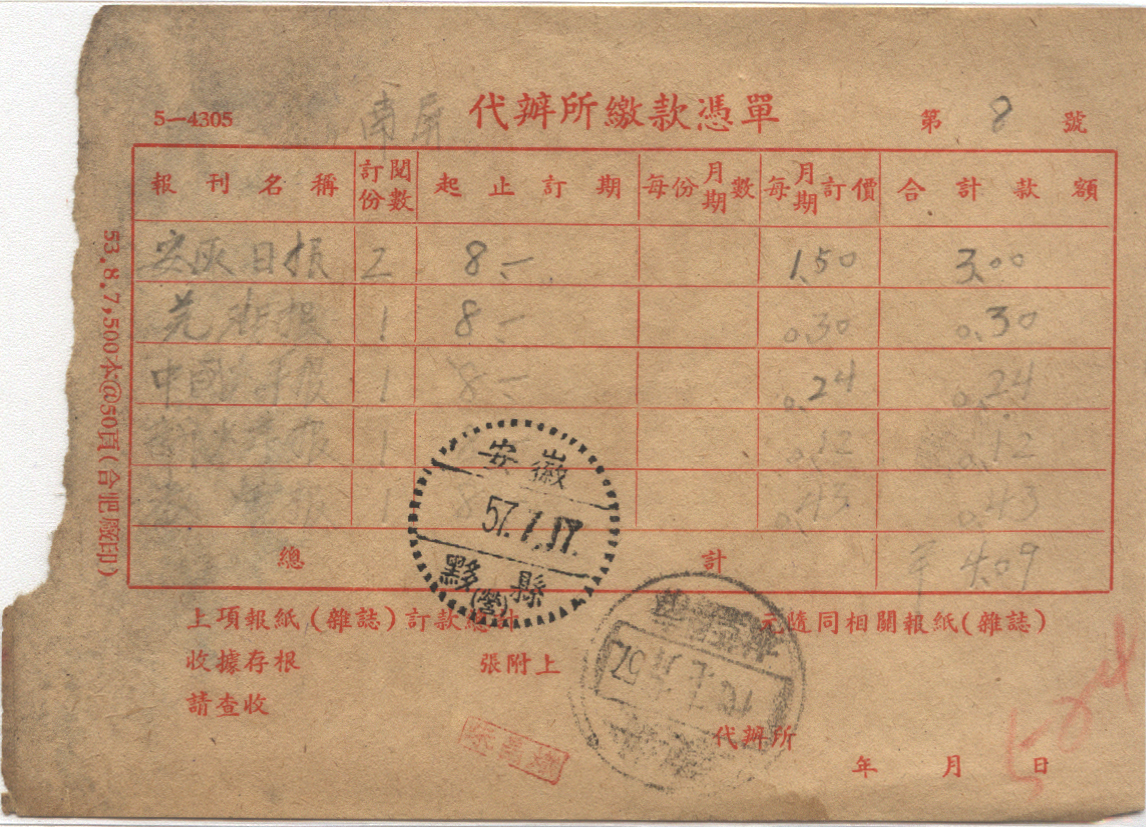 5—4305 南屏 代辦所繳款憑單 第 8 號
報刊名稱 訂閱份數 起止訂期 每份月期數 每月期訂價 合計款額
安灰日报 2 8.— 1.50 3.00
芜湖报 1 8.— 0.30 0.30
中國少年报 1 8.— 0.24 0.24
报 1 0.12 0.12
报 1 8 0.43 0.43
總計 4.09
安徽
57.7.17.
黟縣
(營)
上項報紙(雜誌)訂款總計 元隨同相關報紙(雜誌)
收據存根 張附上
請查收
代辦所
年 月 日
504
53.8.7,500本@50頁(合肥廠印)